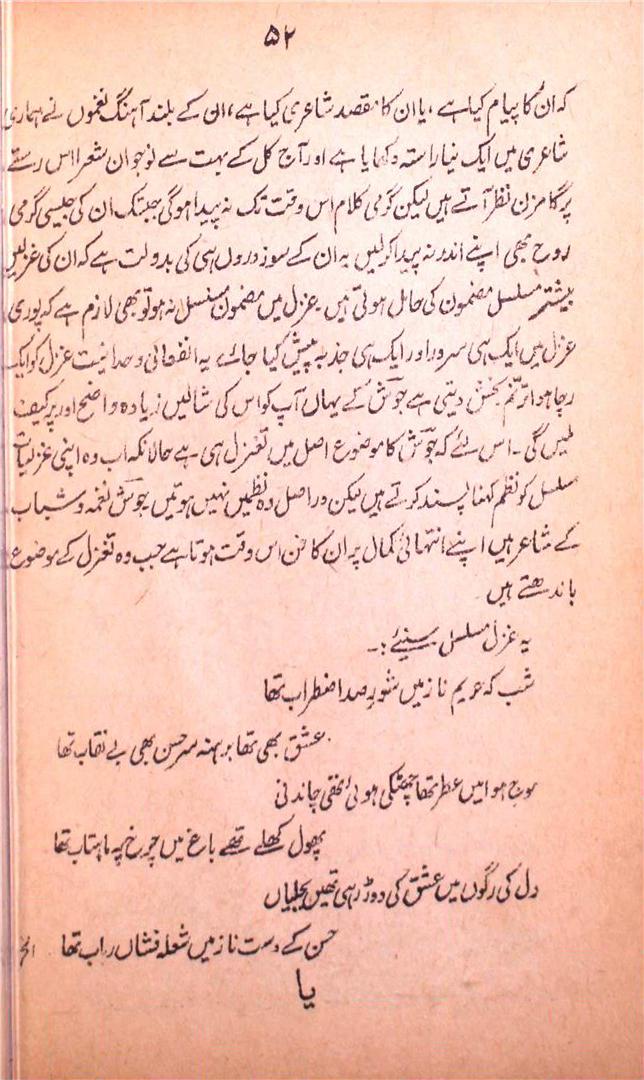 ۵۲
کہ ان کا پیام کیا ہے ، یا ان کا مقصد شاعری کیا ہے ، ان کے بلند آہنگ نغموں نے ہماری
شاعری میں ایک نیا راستہ دکھایا ہے اور آج کل کے بہت سے نوجوان شعرا اس رستے
پر گامزن نظر آتے ہیں لیکن گرمی کلام اس وقت تک نہ پیدا ہوگی جبتک ان کی جیسی گرمی
روح بھی اپنے اندر نہ پیدا کر لیں یہ ان کے سوز دروں ہی کی بدولت ہے کہ ان کی غزلیں
بیشتر مسلسل مضمون کی حامل ہوتی ہیں۔ غزل میں مضمون مسلسل نہ ہو تو بھی لازم ہے کہ پوری
غزل میں ایک ہی سرور اور ایک ہی جذبہ پیش کیا جائے یہ انفعالی وحدانیت غزل کو ایک
رچا ہوا ترنّم بخش دیتی ہے جوشؔ کے یہاں آپ کو اس کی مثالیں زیادہ واضح اور پرکیف
ملیں گی ۔ اس لئے کہ جوشؔ کا موضوع اصل میں تغزل ہی ہے حالانکہ اب وہ اپنی غزلیات
مسلسل کو نظم کہنا پسند کرتے ہیں لیکن دراصل وہ نظمیں نہیں ہوتیں جوشؔ نغمہ و شباب
کے شاعر ہیں اپنے انتہائی کمال پر ان کا فن اس وقت ہوتا ہے جب وہ تغزل کے موضوع
باندھتے ہیں
یہ غزل مسلسل سنیئے :۔
شب کہ حریم ناز میں شورِ صد اضطراب تھا
عشق بھی تھا برہنہ سر حسن بھی بے نقاب تھا
موج ہوا میں عطر تھا چھٹکی ہوئی تھی چاندنی
پھول کھلے تھے باغ میں چرخ پہ ماہتاب تھا
دل کی رگوں میں عشق کی دوڑ رہی تھیں بجلیاں
حسن کے دست ناز میں شعلہ فشاں رباب تھا الخ
یا